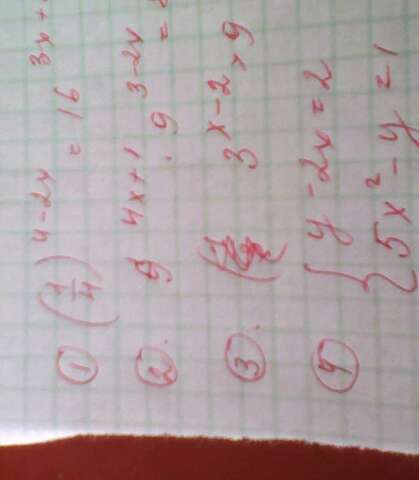 ① (1/4)^(4-2x) = 16^(3x+
② 9^(4x+1) · 9^(3-2x) =
③ 3^(x-2) > 9
④ { y - 2x = 2
5x² - y = 1